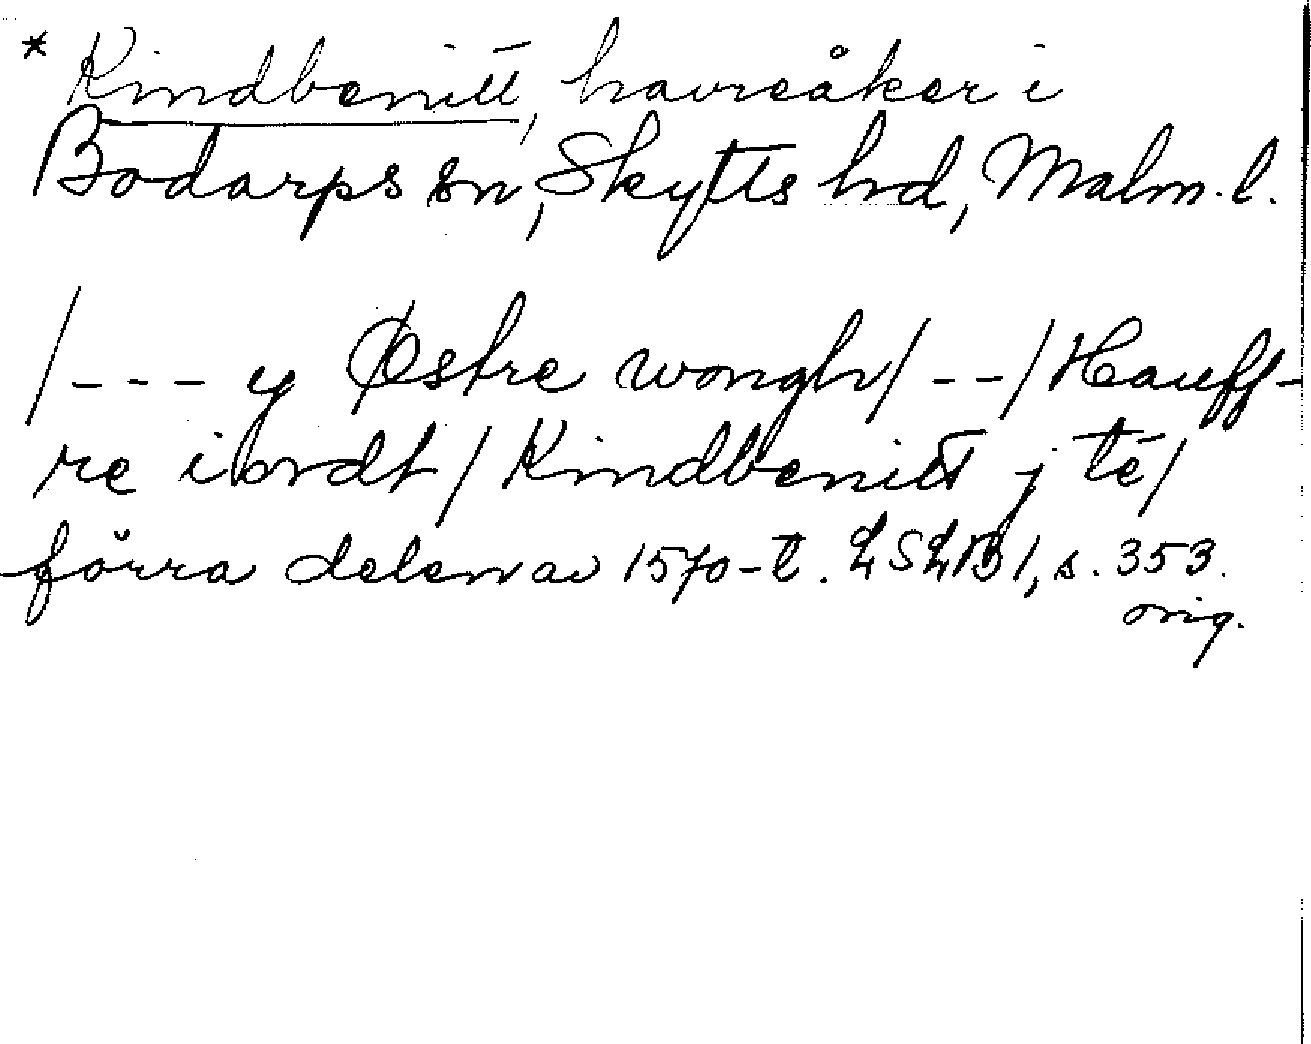 * Kindbenitt, havreåker i
Bodarps sn, Skytts hd, Malm. l.
/--- y Østre wongh/ --/ Hauff-
re iordt / Kindbenitt j té/
förra delen av 1570-t. LSLB 1, s. 353.
orig.